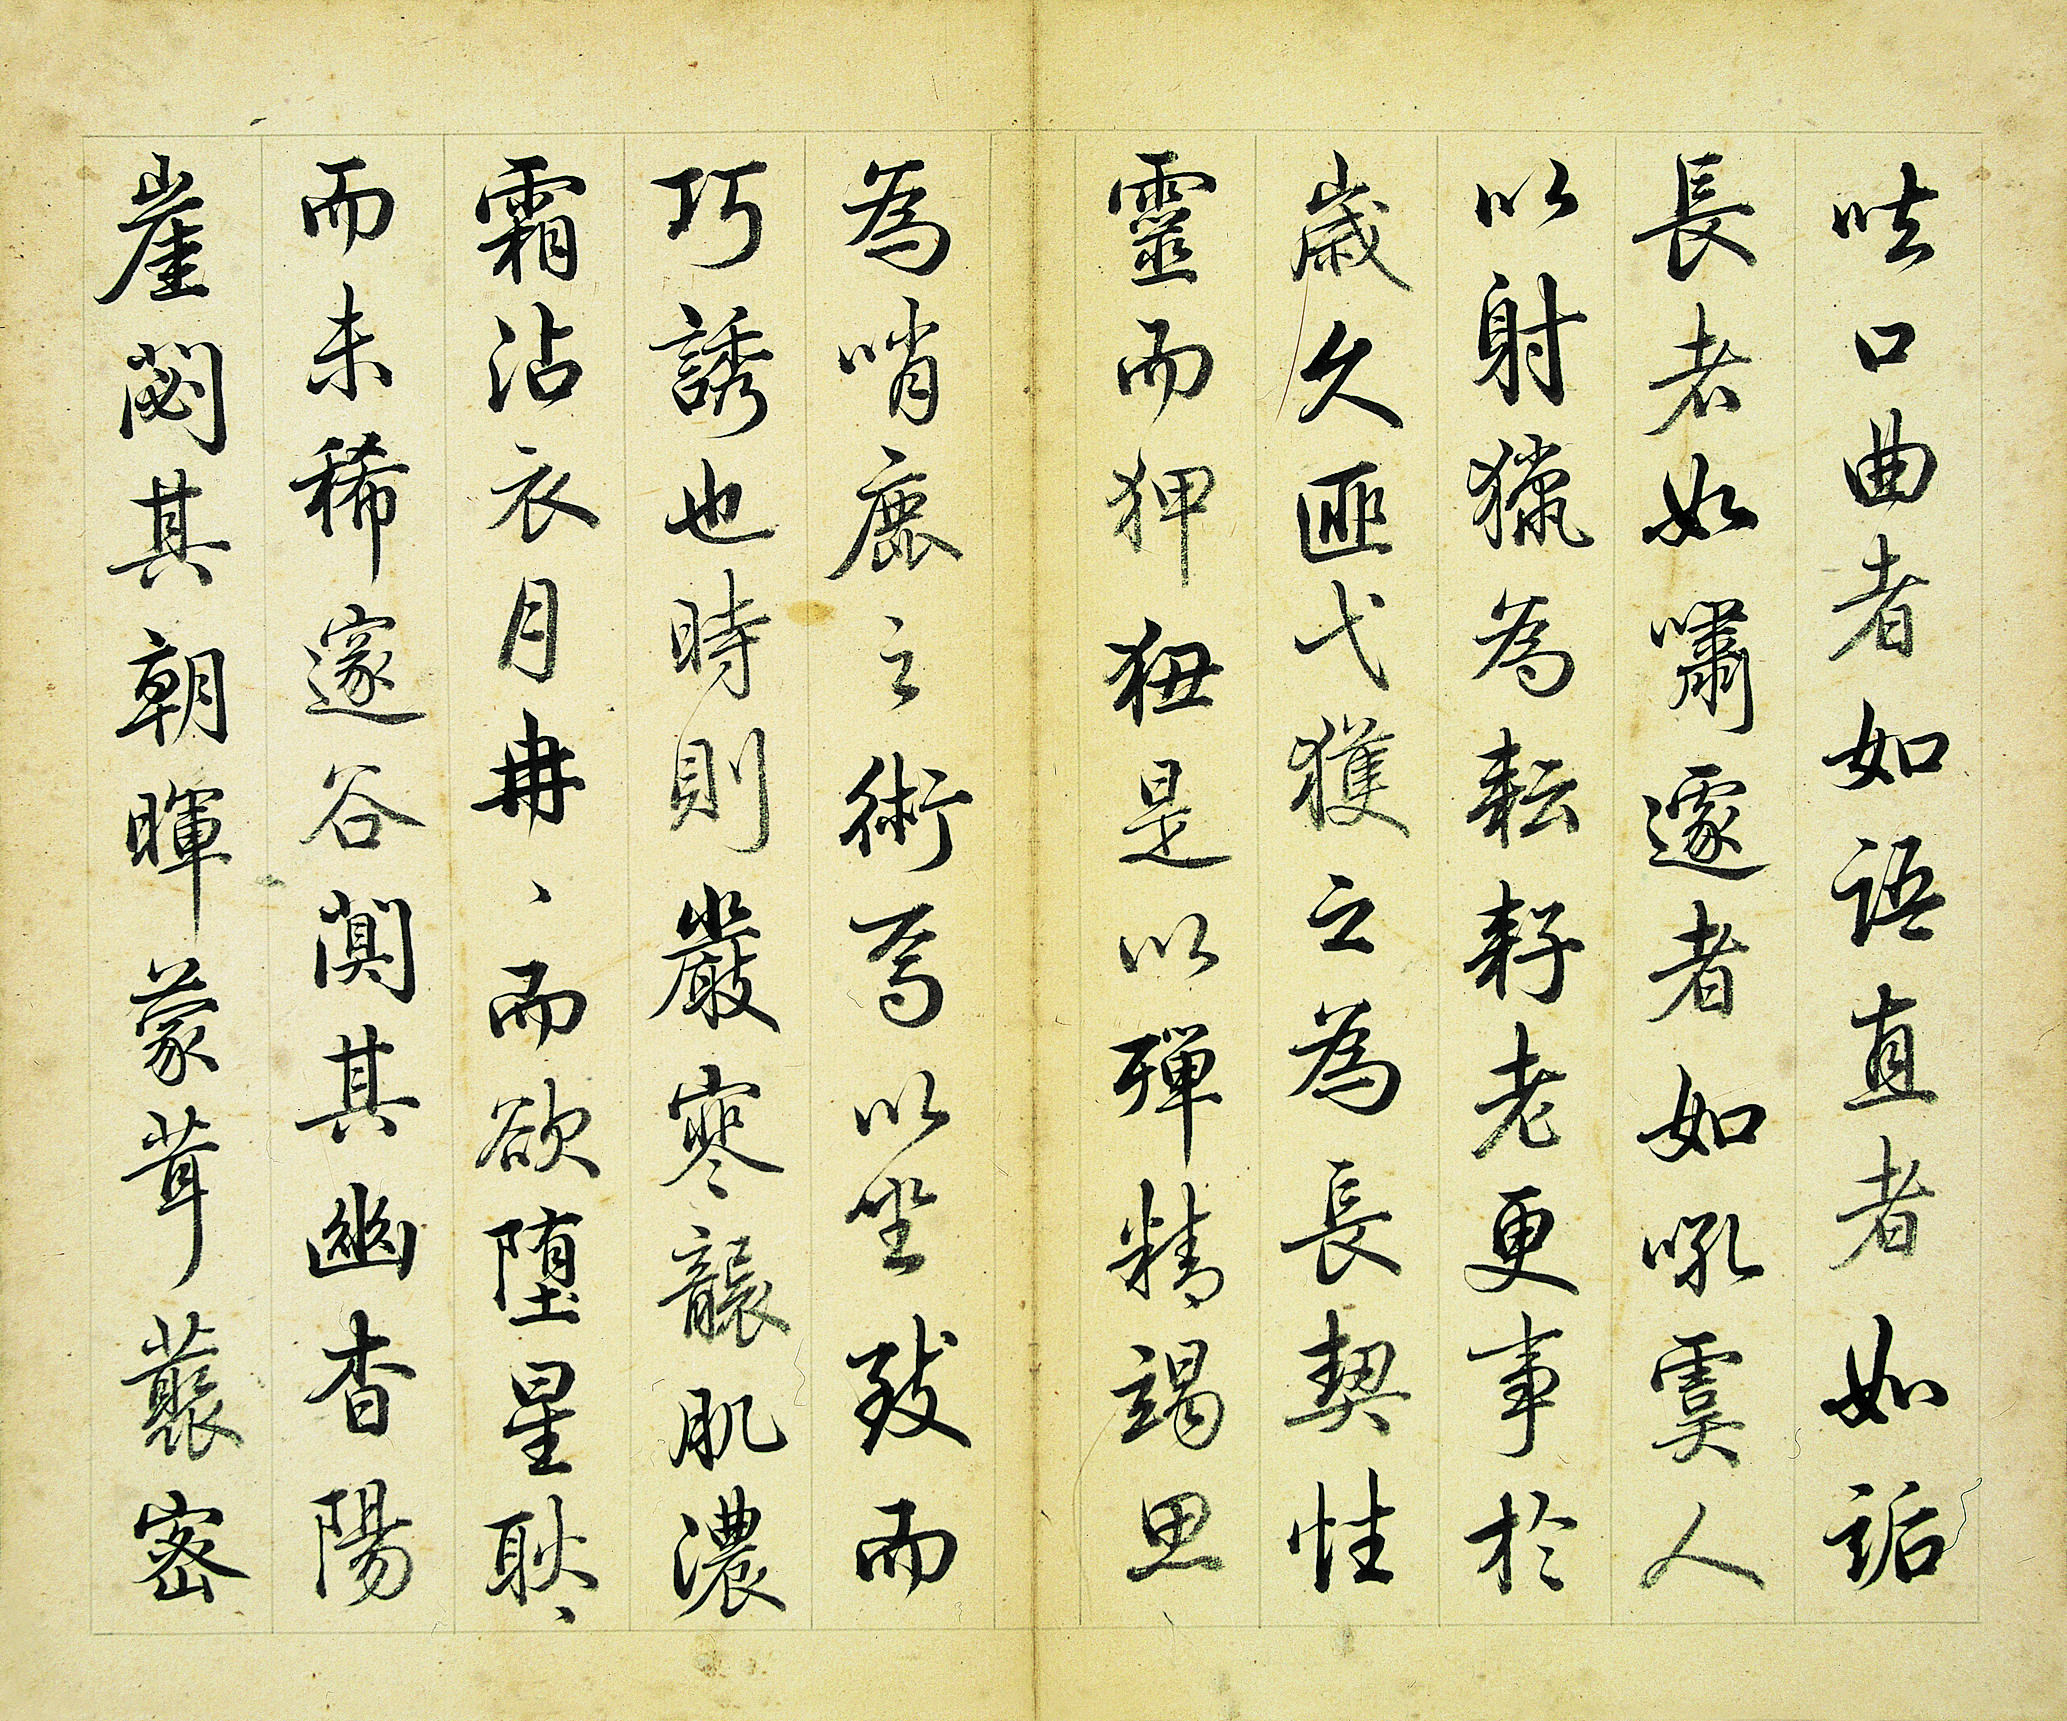 呿口曲者如語直者如詬
長者如嘯遽者如吼虞人
以射獵為耘耔老更事於
歲久匪弋獲之為長契性
靈而狎狃是以殫精竭思
為哨鹿之術焉以坐致而
巧誘也時則嚴寒襲肌濃
霜沾衣月冉、而欲墮星耿、
而未稀邃谷闃其幽杳陽
崖閟其朝暉蒙茸藂密